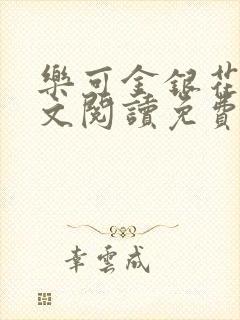 樂可金銀花
文閱讀免費
幸雲成